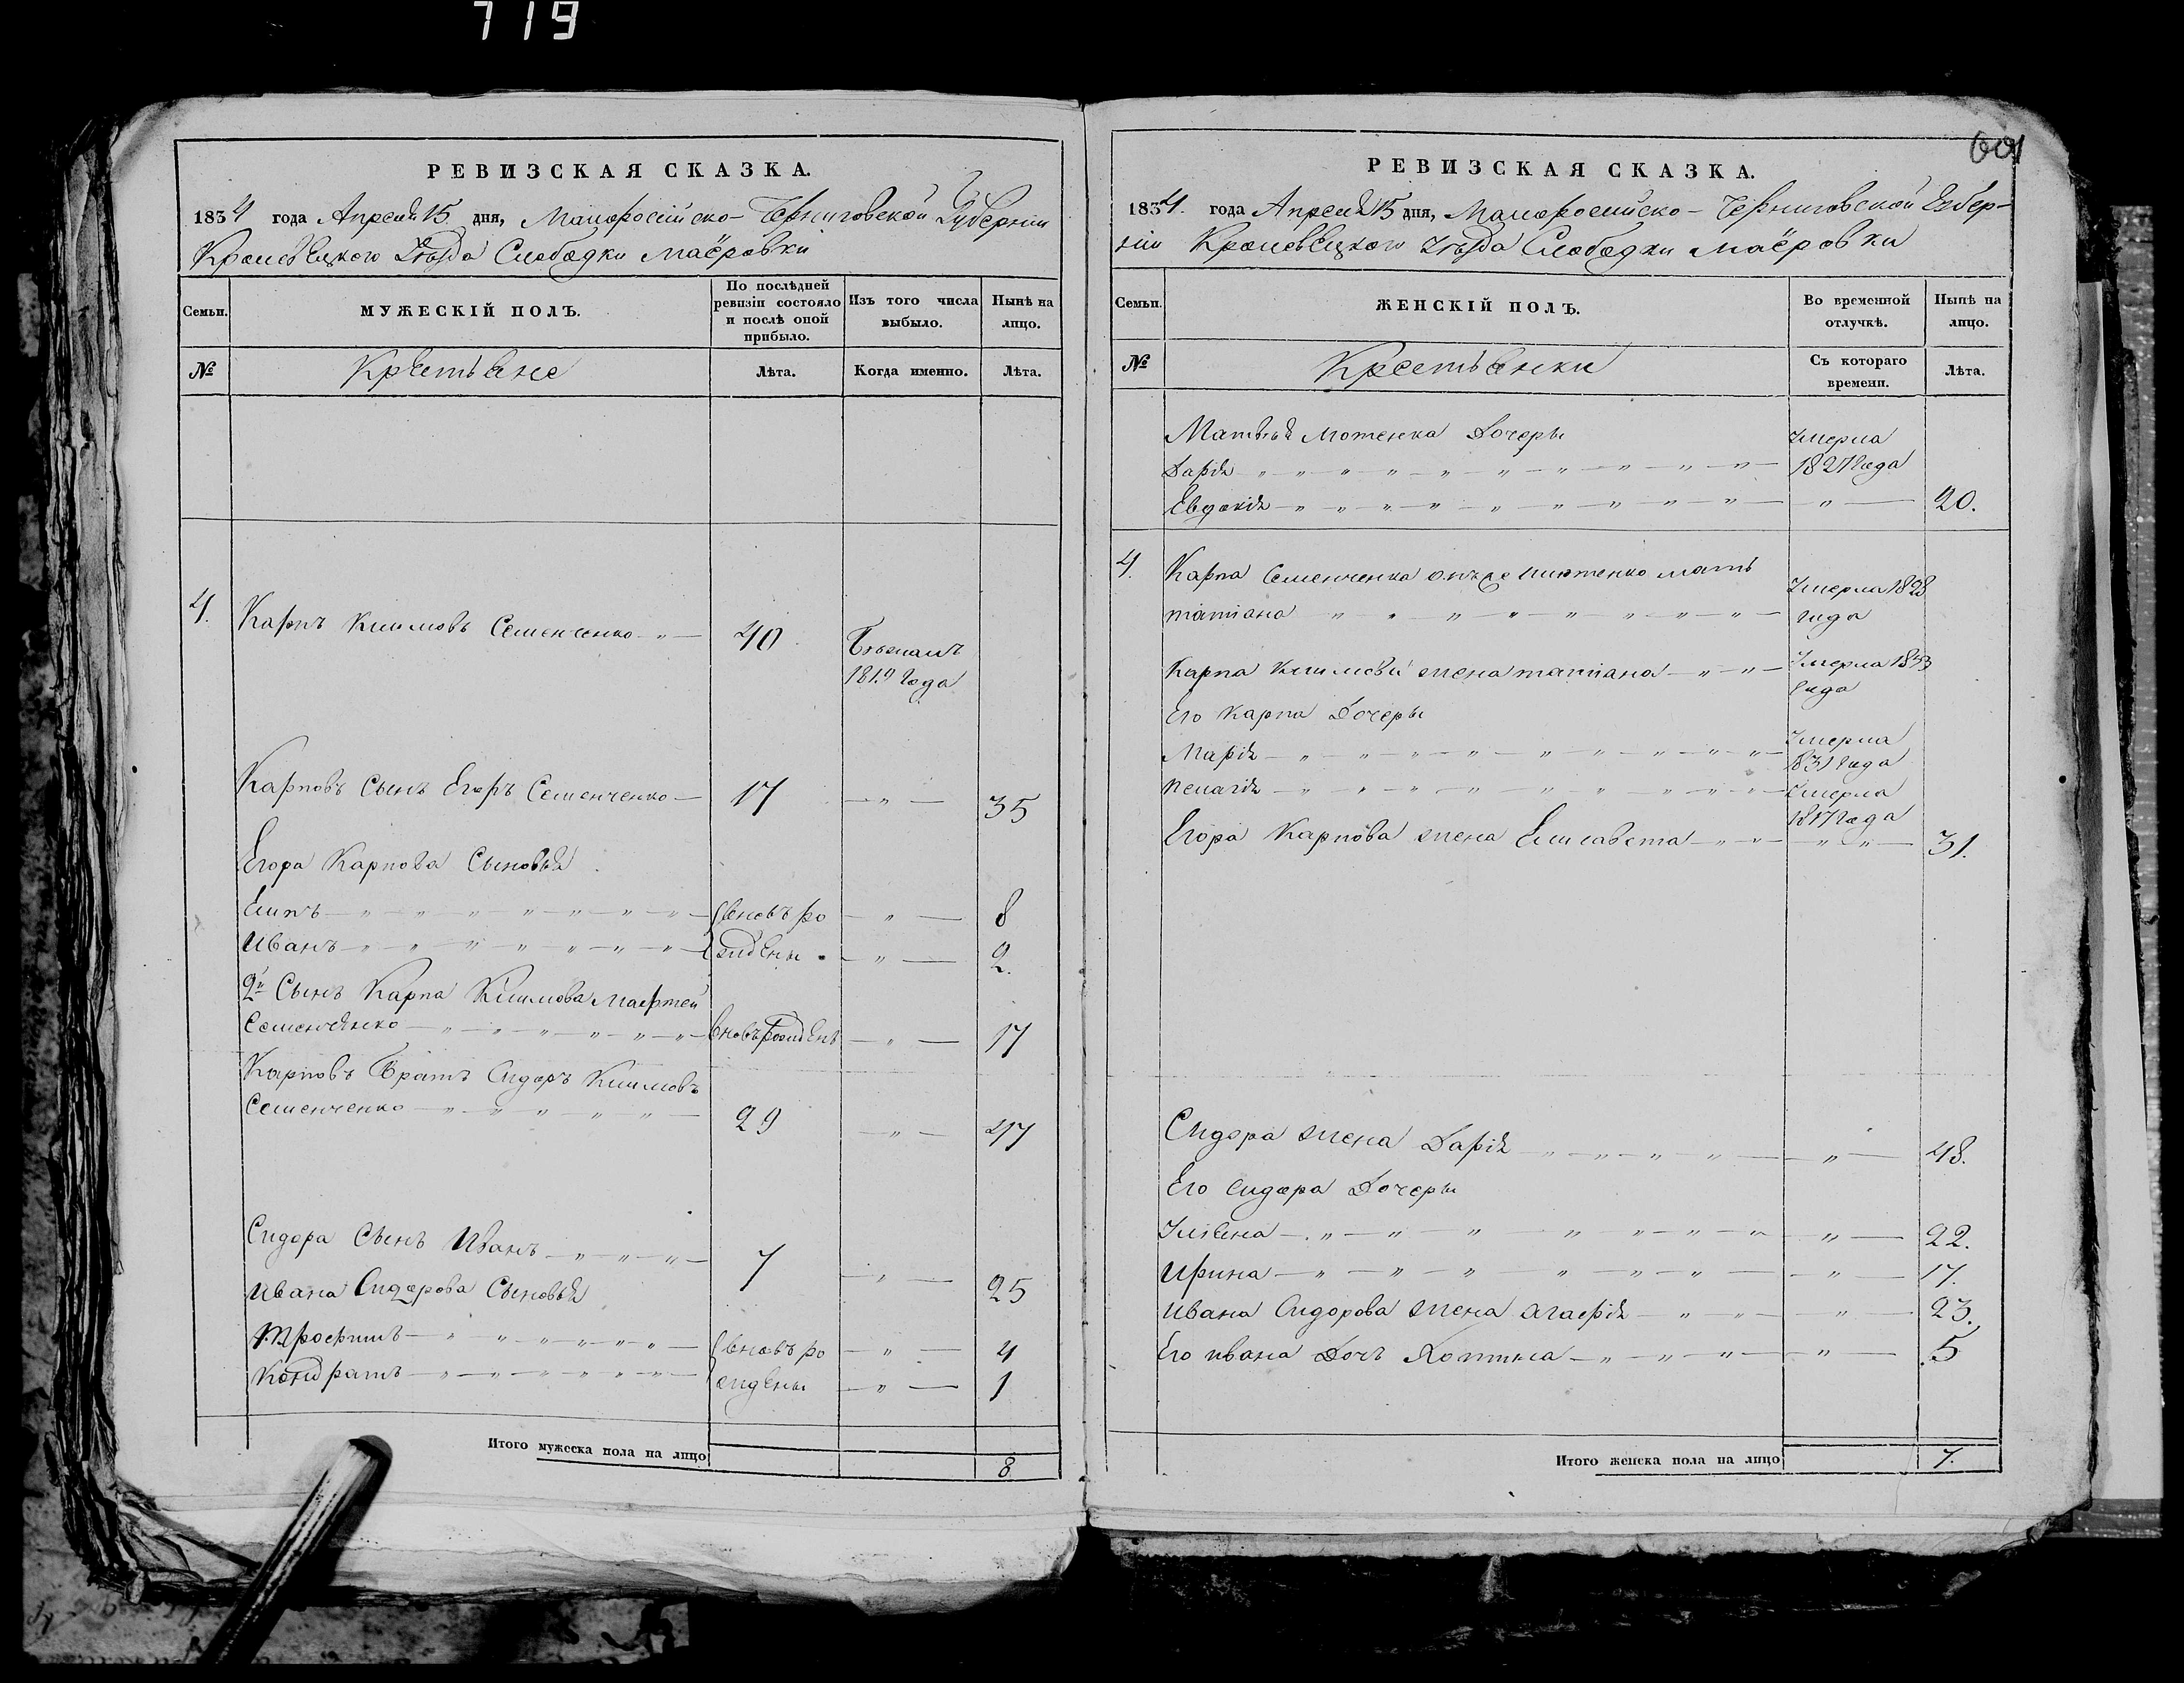 719
РЕВИЗСКАЯ СКАЗКА.
1834 года Апреля 15 дня, Малоросийско-Черниговской Губернии
Кролевецкого уѣзда Слободки маёровки
Семьи.
МУЖЕСКІЙ ПОЛЪ.
По послѣдней ревизіи состояло и послѣ оной прибыло.
Изъ того числа выбыло.
Нынѣ на лицо.
№
Крестьяне
Лѣта.
Когда именно.
Лѣта.
4. Карпъ Климовъ Семенченко 40 Бѣжалъ
1819 года
Карповъ Сынъ Егоръ Семенченко 17 35
Егора Карпова Сыновья
вновь ро 8
Иванъ ждены 2.
2й Сынъ Карпа Климова
Семенченко вновь рожденъ 17
Карповъ Братъ Сидоръ Климовъ
Семенченко 29 47
Сидора Сынъ Иванъ 7 25
Ивана Сидорова Сыновья
Трофимъ вновь ро 4
Кондратъ ждены 1
Итого мужеска пола на лицо 8
601
РЕВИЗСКАЯ СКАЗКА.
1834. года Апреля 15 дня, Малоросийско-Черниговской Губер-
ніи Кролевецкого уѣзда Слободки маёровки
Семьи.
ЖЕНСКІЙ ПОЛЪ.
Во временной отлучкѣ.
Нынѣ на лицо.
№
Крестьянки
Съ котораго времени.
Лѣта.
Матвѣя Мотенка Дочеры умерла
Дарія 1827 года
Евдокія 20.
4. Карпа Семенченка мать
татіана умерла 1828
года
Карпа Климова жена татіана умерла 1833
года
Его Карпа Дочеры
Марія умерла
1831 года
пелагія умерла
1817 года
Егора Карпова жена Елисавета 31.
Сидора жена Дарія 48.
Его сидора Дочеры
Уліена 22.
Ирина 17.
Ивана Сидорова жена агафія 23.
Его ивана Дочь 5
Итого женска пола на лицо 7.